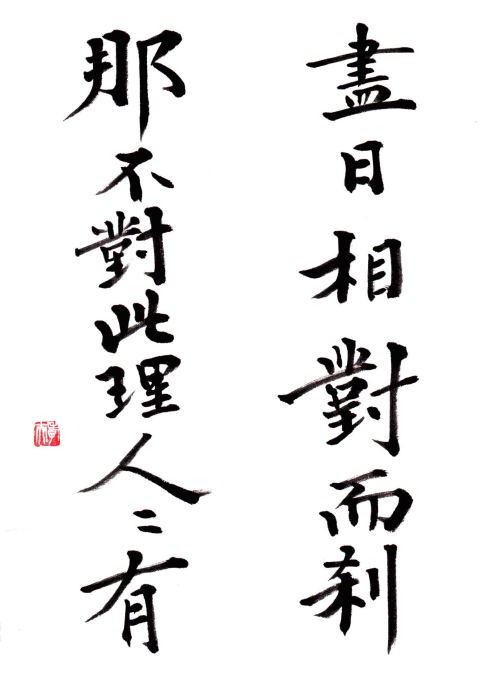 盡日相對而刹
那不對此理人〻有